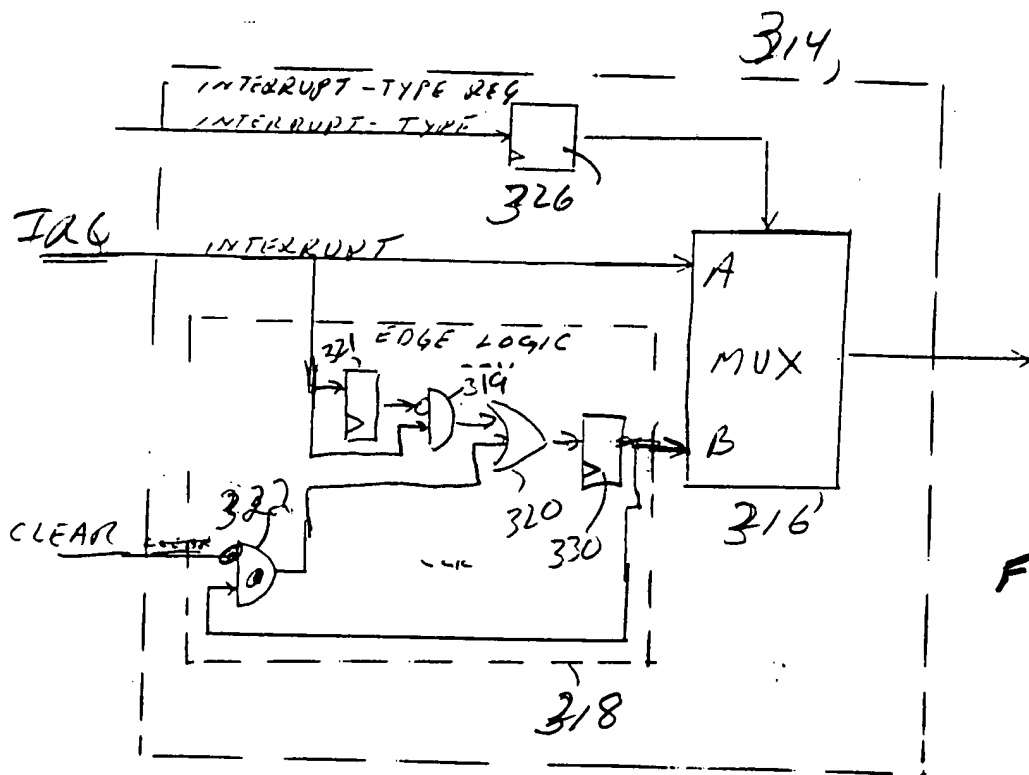 314
INTERRUPT-TYPE REG
INTERRUPT-TYPE
326
IRQ
INTERRUPT
A
EDGE LOGIC
321
319
MUX
B
320
330
316
322
CLEAR
F
318